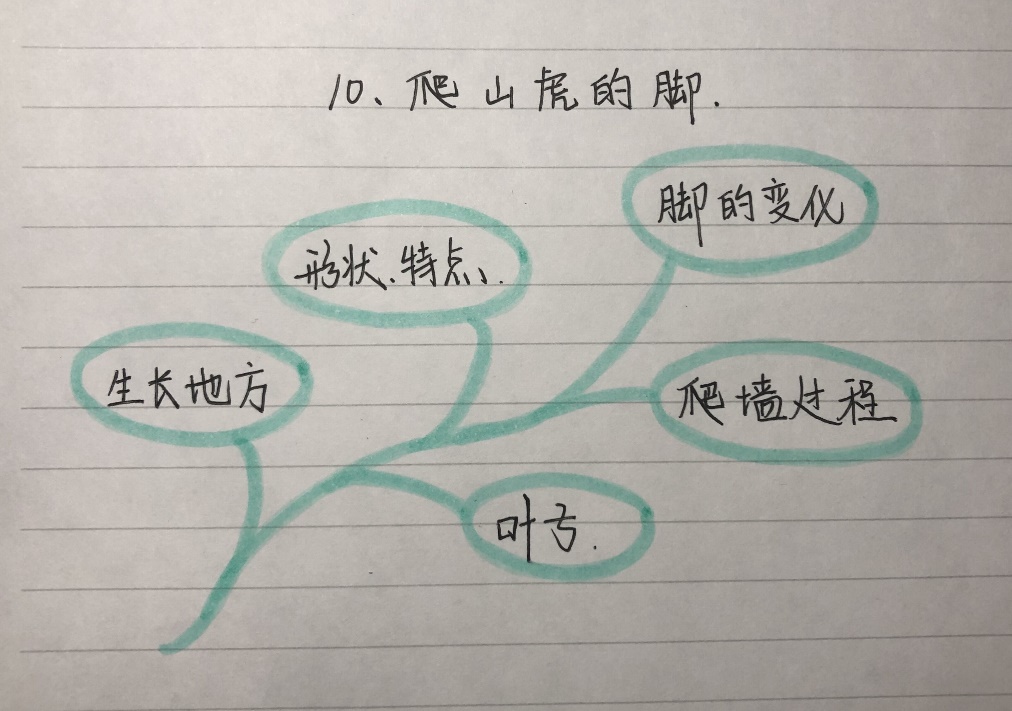 10、爬山虎的脚.
脚的变化
形状、特点、.
生长地方
爬墙过程
叶子.